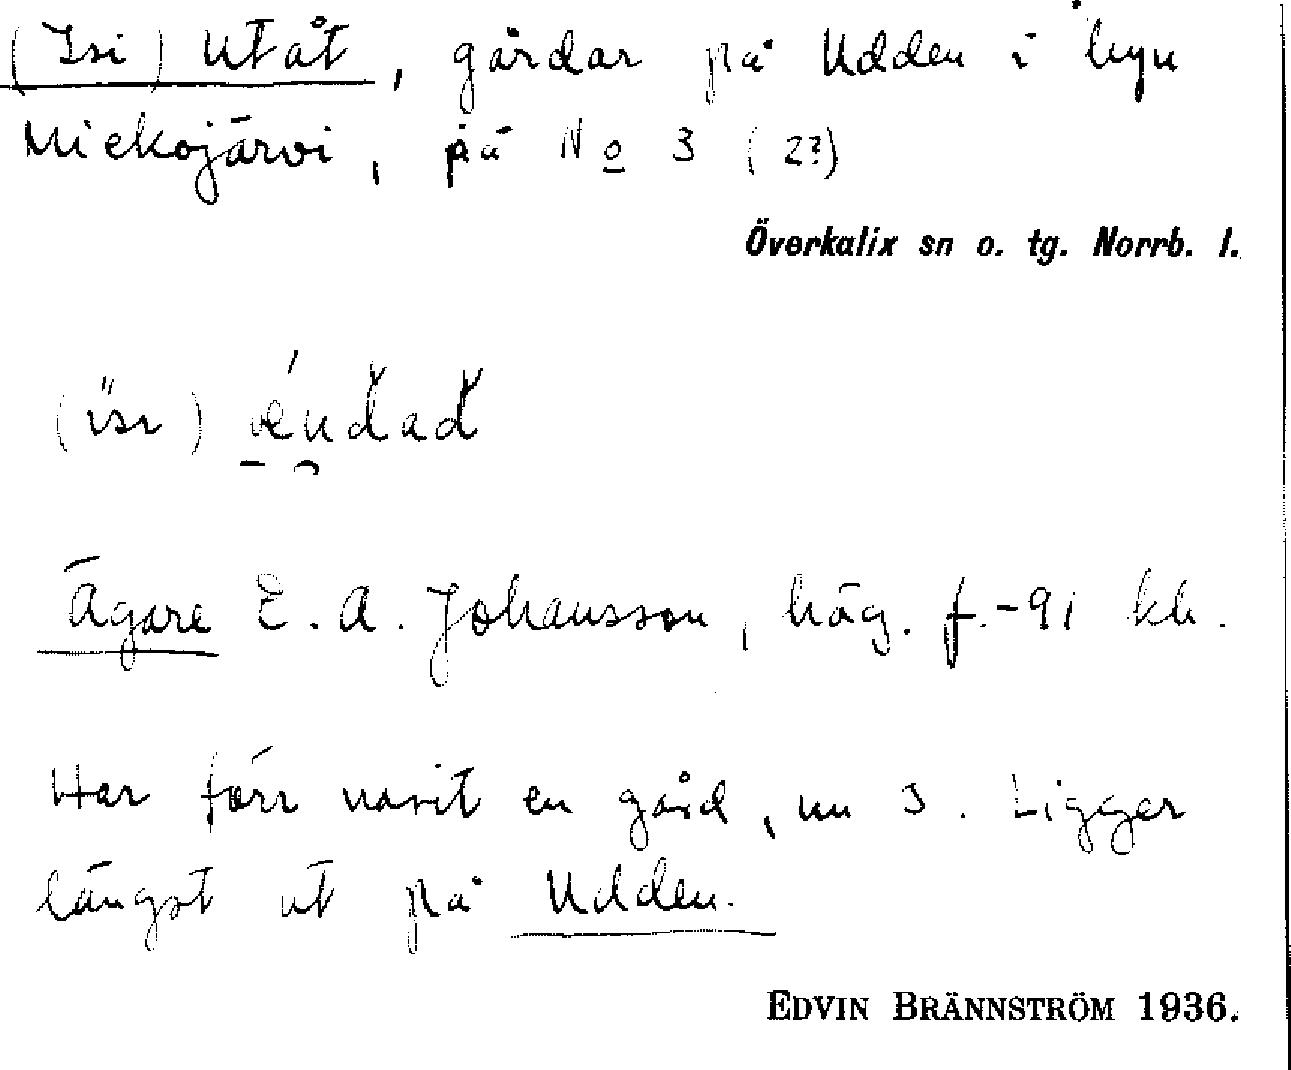 (Isi) Utåt, gårdar på Udden i byn
Miekojärvi, på No 3 (2?)
Överkalix sn o. tg. Norrb. l.
Ägare E. A. Johansson, häg. f.-91 kh.
Har förr varit en gård, nu 3. Ligger
längst ut på Udden.
EDVIN BRÄNNSTRÖM 1936.